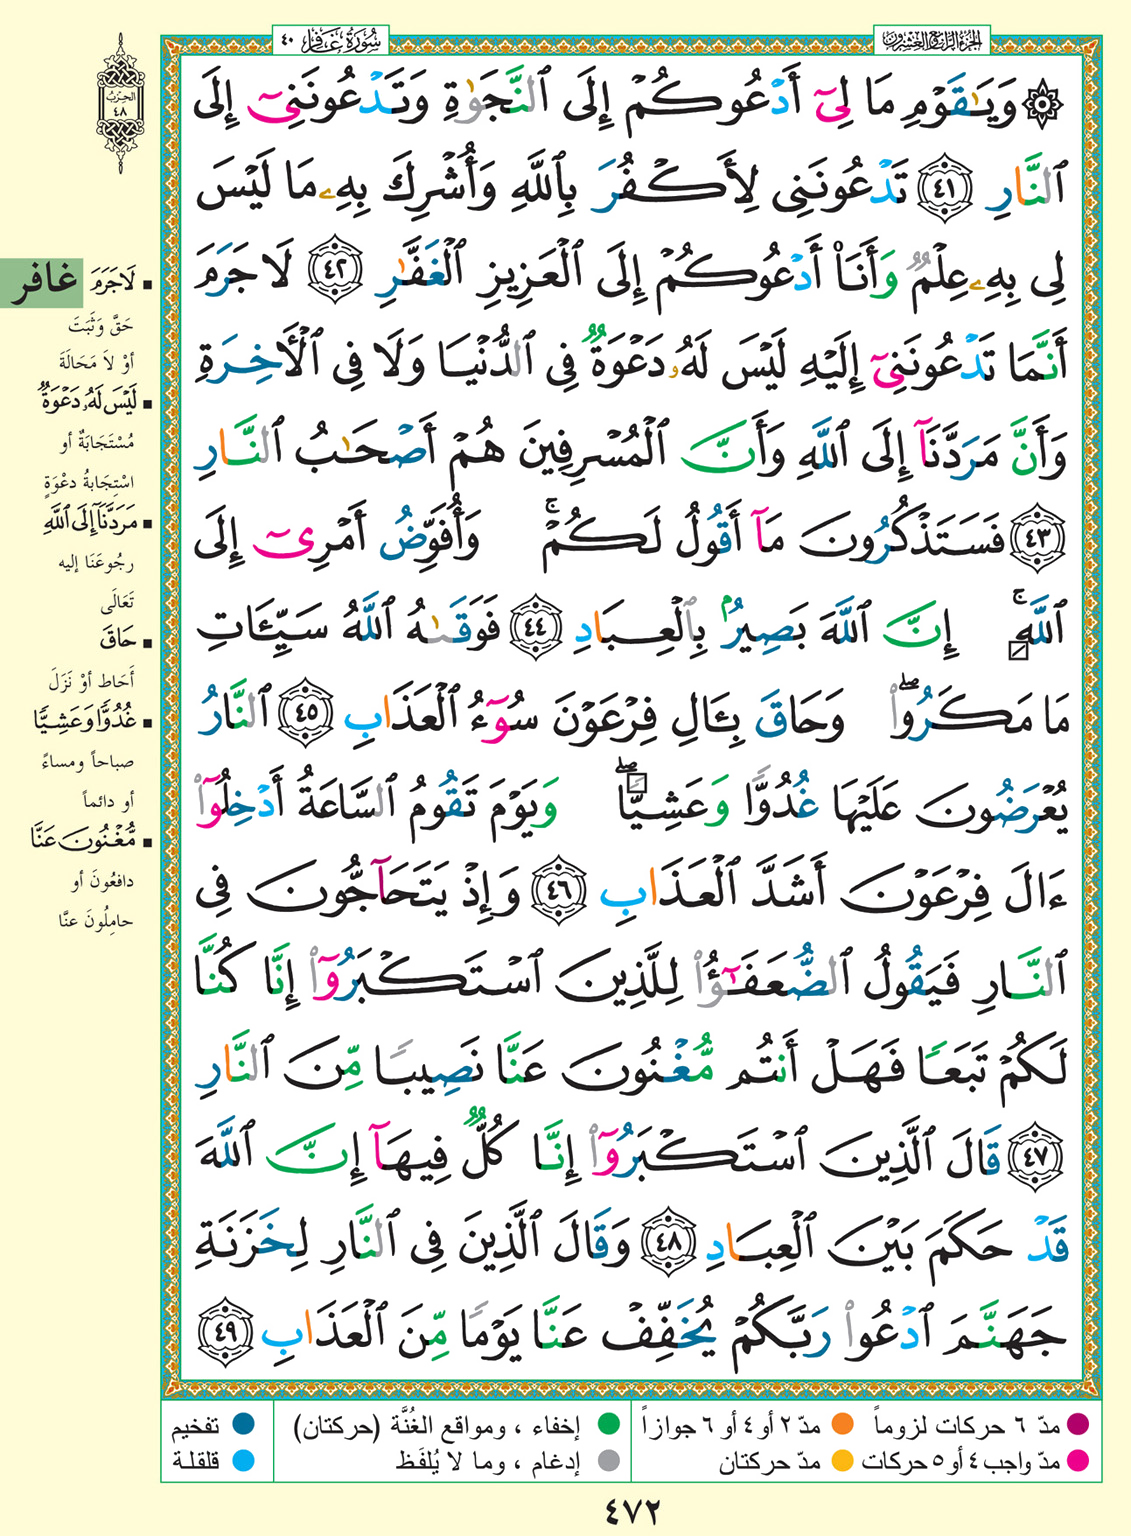 سُورَةُ غَافِر ٤٠
الجزء الرابع والعشرون
الحِزبُ
٤٨
۞ وَيَـٰقَوْمِ مَا لِىٓ أَدْعُوكُمْ إِلَى ٱلنَّجَوٰةِ وَتَدْعُونَنِىٓ إِلَى
ٱلنَّارِ ٤١ تَدْعُونَنِى لِأَكْفُرَ بِٱللَّهِ وَأُشْرِكَ بِهِۦ مَا لَيْسَ
لِى بِهِۦ عِلْمٌ وَأَنَا۠ أَدْعُوكُمْ إِلَى ٱلْعَزِيزِ ٱلْغَفَّـٰرِ ٤٢ لَا جَرَمَ
أَنَّمَا تَدْعُونَنِىٓ إِلَيْهِ لَيْسَ لَهُۥ دَعْوَةٌ فِى ٱلدُّنْيَا وَلَا فِى ٱلْـَٔاخِرَةِ
وَأَنَّ مَرَدَّنَآ إِلَى ٱللَّهِ وَأَنَّ ٱلْمُسْرِفِينَ هُمْ أَصْحَـٰبُ ٱلنَّارِ
٤٣ فَسَتَذْكُرُونَ مَآ أَقُولُ لَكُمْ ۚ وَأُفَوِّضُ أَمْرِىٓ إِلَى
ٱللَّهِ ۚ إِنَّ ٱللَّهَ بَصِيرٌۢ بِٱلْعِبَادِ ٤٤ فَوَقَىٰهُ ٱللَّهُ سَيِّـَٔاتِ
مَا مَكَرُوا۟ ۖ وَحَاقَ بِـَٔالِ فِرْعَوْنَ سُوٓءُ ٱلْعَذَابِ ٤٥ ٱلنَّارُ
يُعْرَضُونَ عَلَيْهَا غُدُوًّا وَعَشِيًّا ۖ وَيَوْمَ تَقُومُ ٱلسَّاعَةُ أَدْخِلُوٓا۟
ءَالَ فِرْعَوْنَ أَشَدَّ ٱلْعَذَابِ ٤٦ وَإِذْ يَتَحَآجُّونَ فِى
ٱلنَّارِ فَيَقُولُ ٱلضُّعَفَـٰٓؤُا۟ لِلَّذِينَ ٱسْتَكْبَرُوٓا۟ إِنَّا كُنَّا
لَكُمْ تَبَعًا فَهَلْ أَنتُم مُّغْنُونَ عَنَّا نَصِيبًا مِّنَ ٱلنَّارِ
٤٧ قَالَ ٱلَّذِينَ ٱسْتَكْبَرُوٓا۟ إِنَّا كُلٌّ فِيهَآ إِنَّ ٱللَّهَ
قَدْ حَكَمَ بَيْنَ ٱلْعِبَادِ ٤٨ وَقَالَ ٱلَّذِينَ فِى ٱلنَّارِ لِخَزَنَةِ
جَهَنَّمَ ٱدْعُوا۟ رَبَّكُمْ يُخَفِّفْ عَنَّا يَوْمًا مِّنَ ٱلْعَذَابِ ٤٩
غافر
■ لَا جَرَمَ
حَقَّ وَثَبَتَ
أوْ لاَ مَحَالَةَ
■ لَيْسَ لَهُۥ دَعْوَةٌ
مُسْتَجَابَةٌ أو
اسْتِجَابةُ دعْوَةٍ
■ مَرَدَّنَآ إِلَى ٱللَّهِ
رجُوعَنَا إليه
تَعَالَى
■ حَاقَ
أَحَاط أوْ نَزَلَ
■ غُدُوًّا وَعَشِيًّا
صباحاً ومساءً
أو دائماً
■ مُّغْنُونَ عَنَّا
دافعُونَ أو
حامِلُونَ عنَّا
مدّ ٦ حركات لزوماً
مدّ ٢ أو ٤ أو ٦ جوازاً
إخفاء ، ومواقع الغُنَّة (حركتان)
تفخيم
مدّ واجب ٤ أو ٥ حركات
مدّ حركتان
إدغام ، وما لا يُلفَظ
قلقلة
٤٧٢